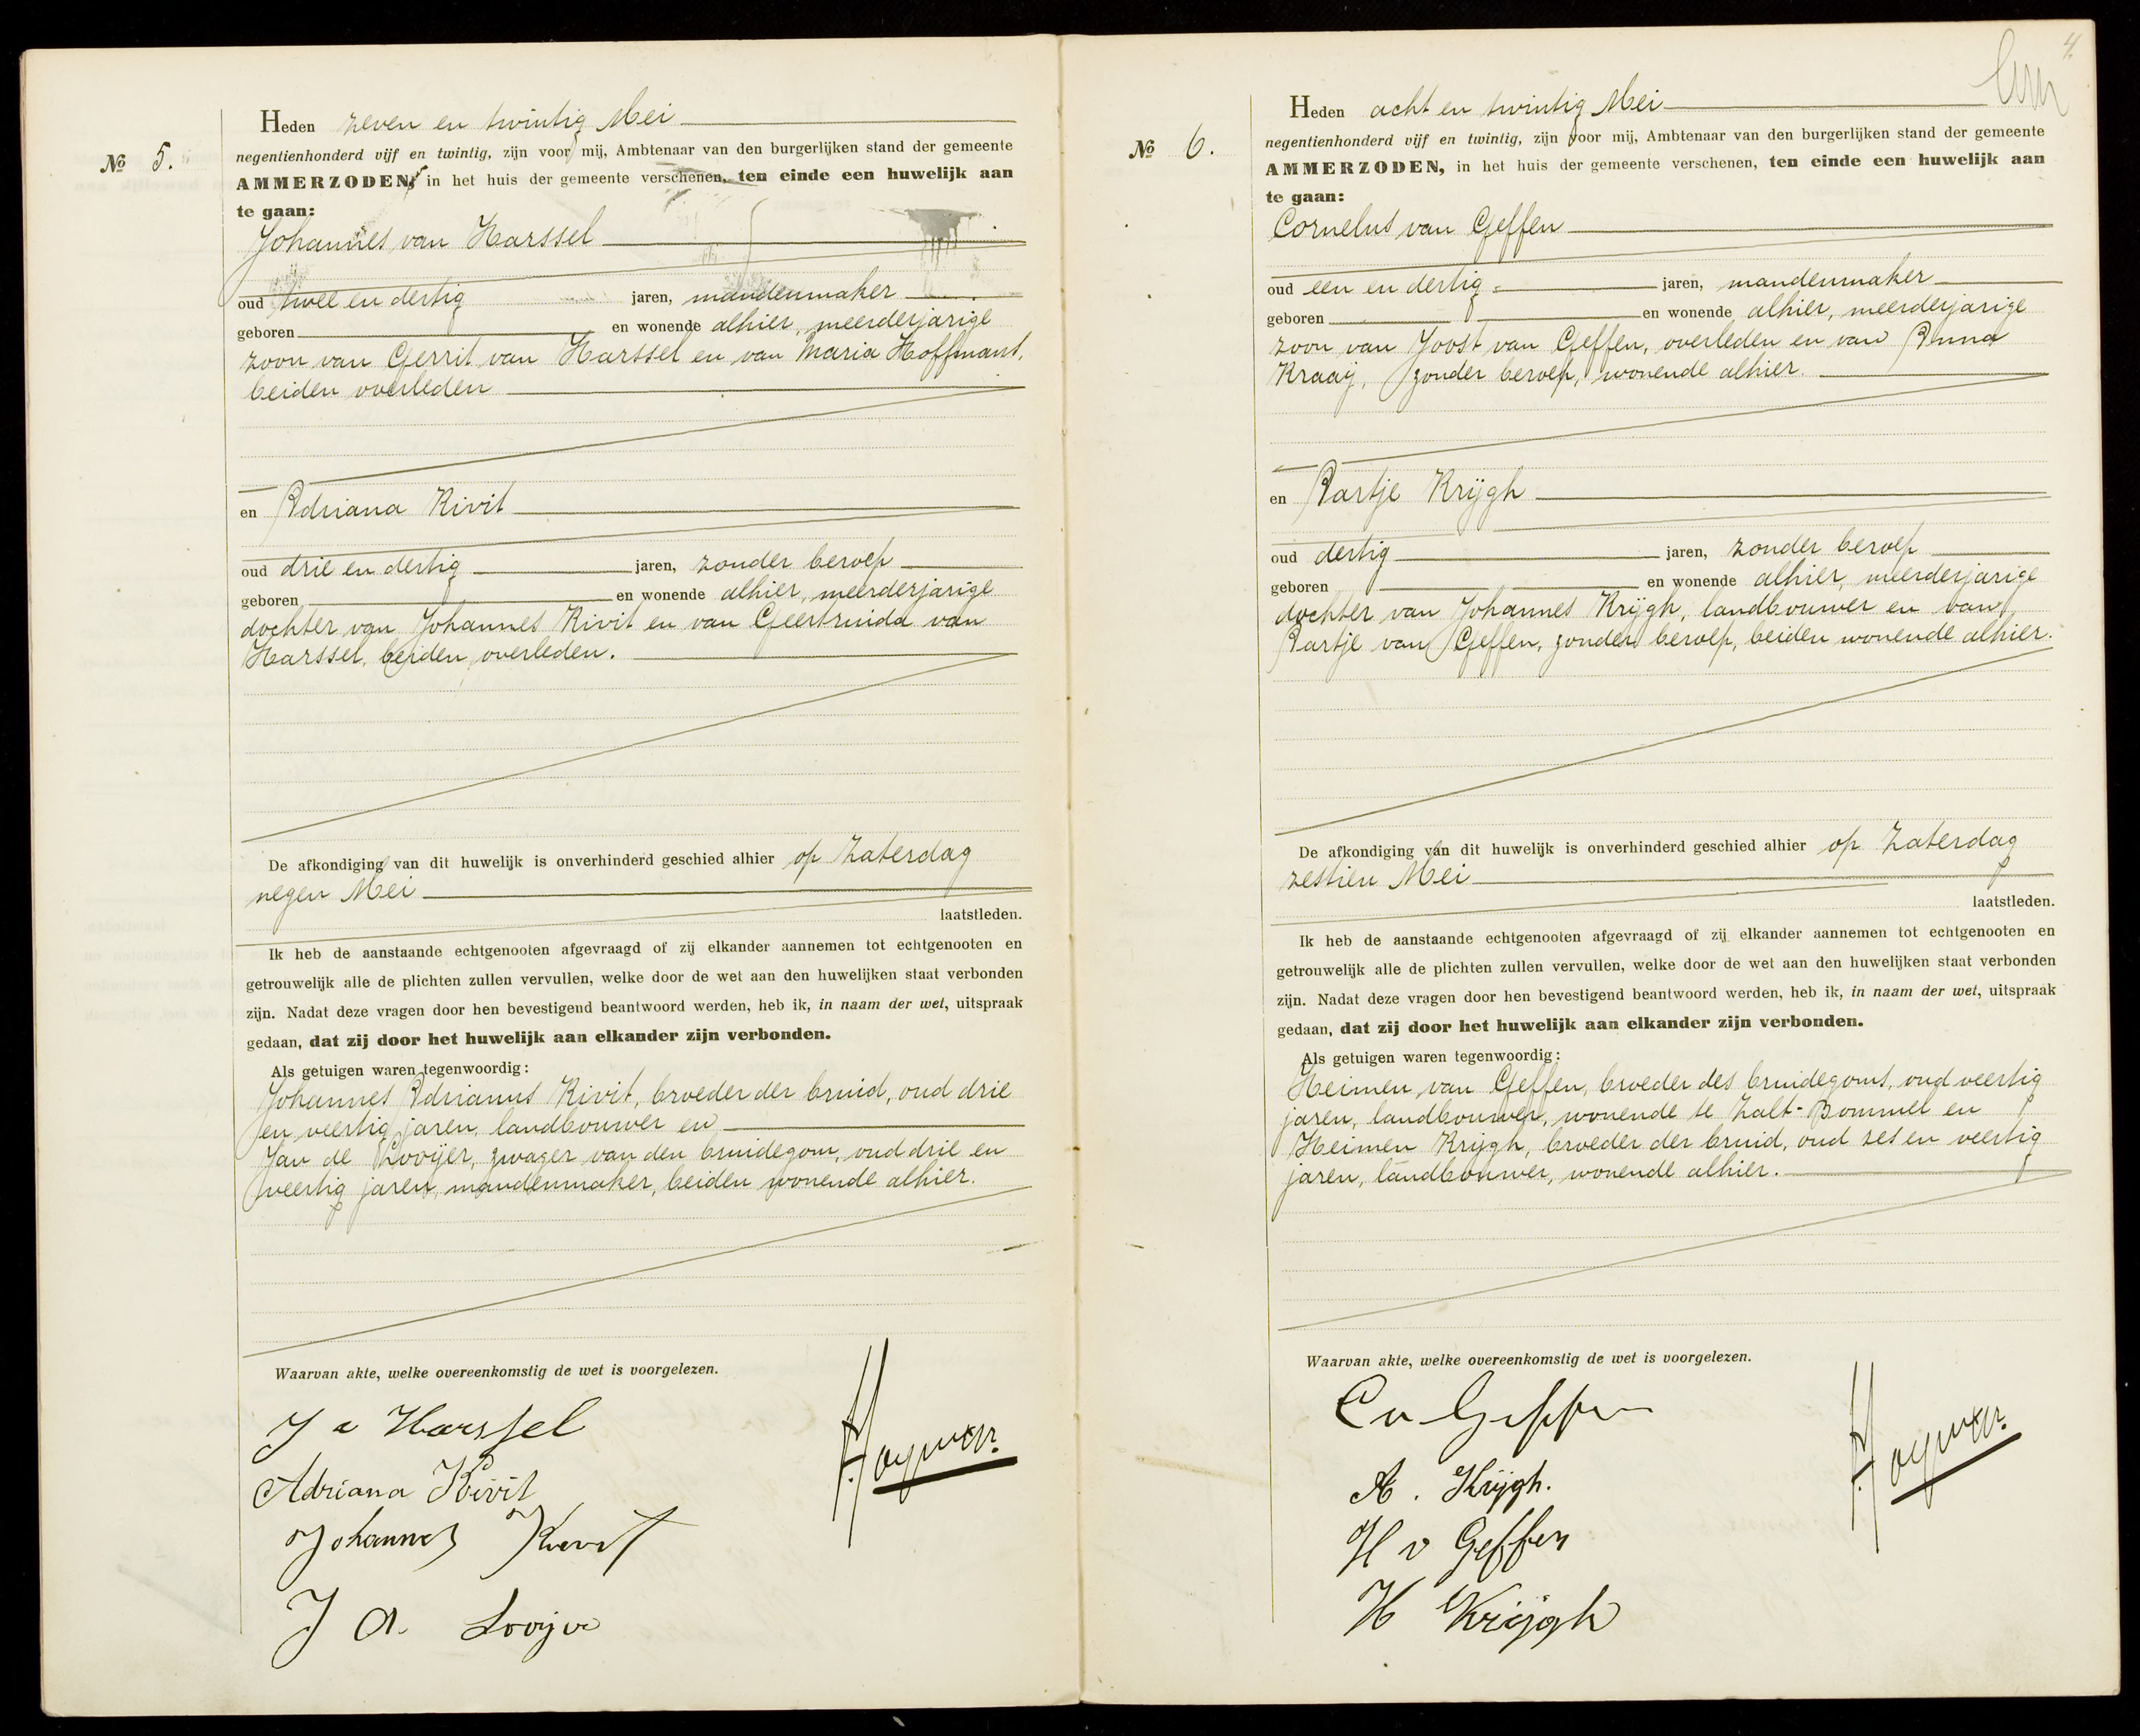 № 5.
Heden zeven en twintig Mei
negentienhonderd vijf en twintig, zijn voor mij, Ambtenaar van den burgerlijken stand der gemeente
AMMERZODEN, in het huis der gemeente verschenen, ten einde een huwelijk aan
te gaan:
Johannes van Harssel
oud twee en dertig jaren, mandenmaker
geboren en wonende alhier, meerderjarige
zoon van Gerrit van Harssel en van Maria Hoffmans,
beiden overleden
en Adriana Kivit
oud drie en dertig jaren, zonder beroep
geboren en wonende alhier, meerderjarige
dochter van Johannes Kivit en van Geertruida van
Harssel, beiden overleden.
De afkondiging van dit huwelijk is onverhinderd geschied alhier op Zaterdag
negen Mei
laatstleden.
Ik heb de aanstaande echtgenooten afgevraagd of zij elkander aannemen tot echtgenooten en
getrouwelijk alle de plichten zullen vervullen, welke door de wet aan den huwelijken staat verbonden
zijn. Nadat deze vragen door hen bevestigend beantwoord werden, heb ik, in naam der wet, uitspraak
gedaan, dat zij door het huwelijk aan elkander zijn verbonden.
Als getuigen waren tegenwoordig:
Johannes Adrianus Kivit, broeder der bruid, oud drie
en veertig jaren, landbouwer en
Jan de Looijer, zwager van den bruidegom, oud drie en
veertig jaren, mandenmaker, beiden wonende alhier.
Waarvan akte, welke overeenkomstig de wet is voorgelezen.
J v Harssel
Adriana Kivit
Johannes Kivit
J d. Looijer
4.
№ 6.
Heden acht en twintig Mei
negentienhonderd vijf en twintig, zijn voor mij, Ambtenaar van den burgerlijken stand der gemeente
AMMERZODEN, in het huis der gemeente verschenen, ten einde een huwelijk aan
te gaan:
Cornelus van Geffen
oud een en dertig jaren, mandenmaker
geboren en wonende alhier, meerderjarige
zoon van Joost van Geffen, overleden en van Anna
Kraaij, zonder beroep, wonende alhier.
en Aartje Krijgh
oud dertig jaren, zonder beroep
geboren en wonende alhier, meerderjarige
dochter van Johannes Krijgh, landbouwer en van
Aartje van Geffen, zonder beroep, beiden wonende alhier.
De afkondiging van dit huwelijk is onverhinderd geschied alhier op Zaterdag
zestien Mei
laatstleden.
Ik heb de aanstaande echtgenooten afgevraagd of zij elkander aannemen tot echtgenooten en
getrouwelijk alle de plichten zullen vervullen, welke door de wet aan den huwelijken staat verbonden
zijn. Nadat deze vragen door hen bevestigend beantwoord werden, heb ik, in naam der wet, uitspraak
gedaan, dat zij door het huwelijk aan elkander zijn verbonden.
Als getuigen waren tegenwoordig:
Heimen van Geffen, broeder des bruidegoms, oud veertig
jaren, landbouwer, wonende te Zalt-Bommel en
Heimen Krijgh, broeder der bruid, oud zes en veertig
jaren, landbouwer, wonende alhier.
Waarvan akte, welke overeenkomstig de wet is voorgelezen.
C v Geffen
A. Krijgh.
H v Geffen
H Krijgh